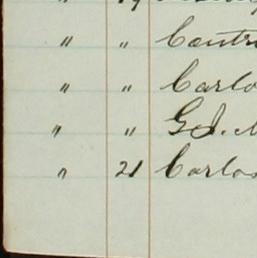 " " Contr
" " Carlo
" " G.J.
" 21 Carlos